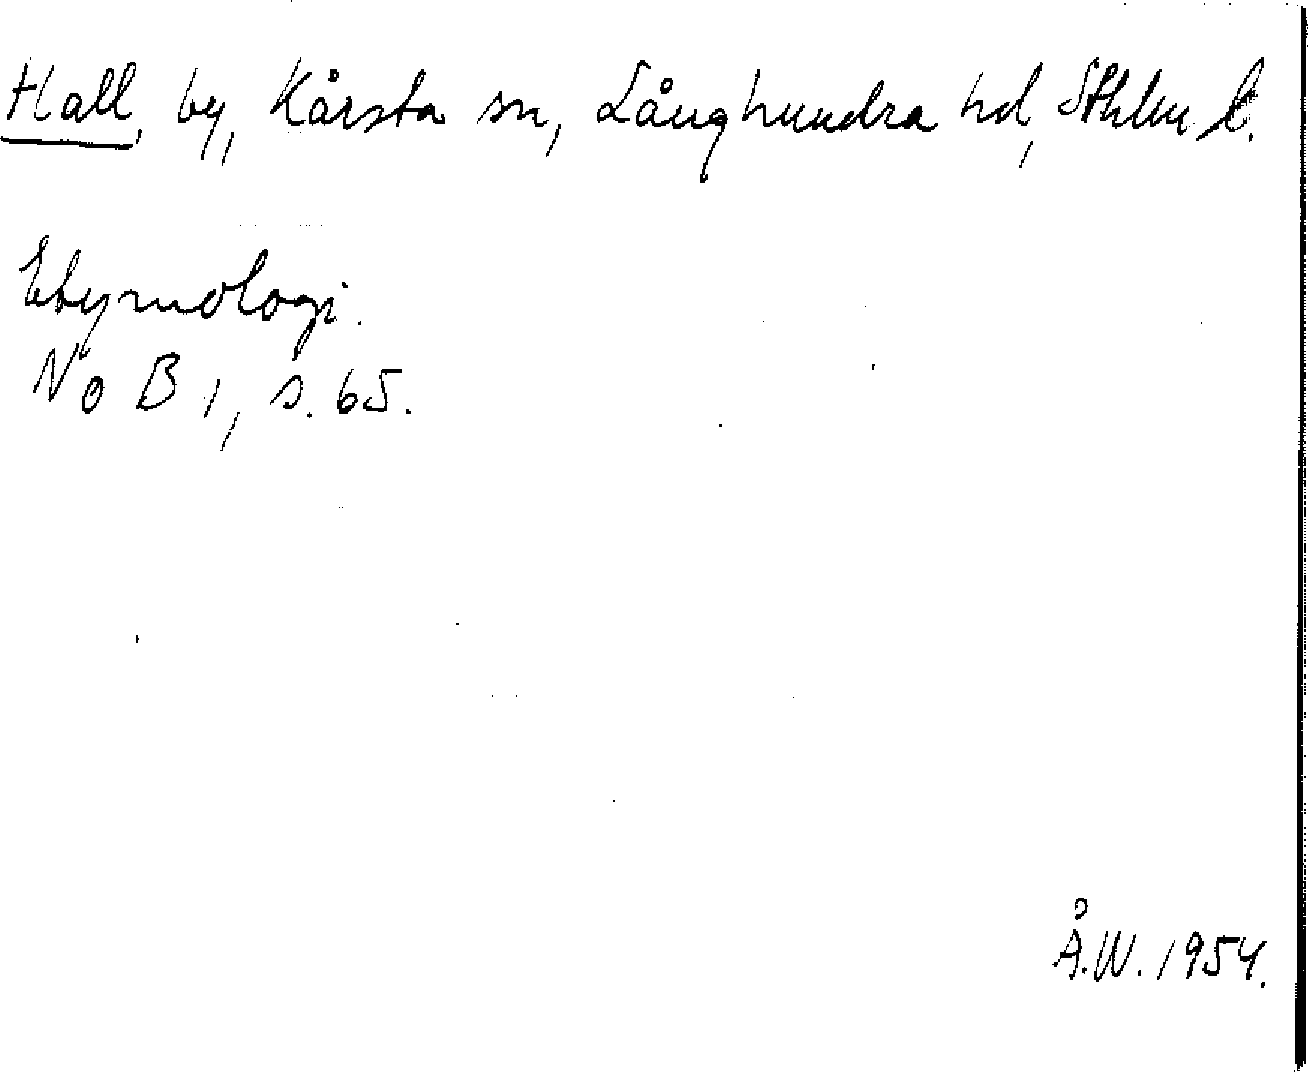 Hall, by, Kårsta sn, Långhundra hd, Sthlm l.
Etymologi.
NoB 1, s. 65.
Å.W. 1954.